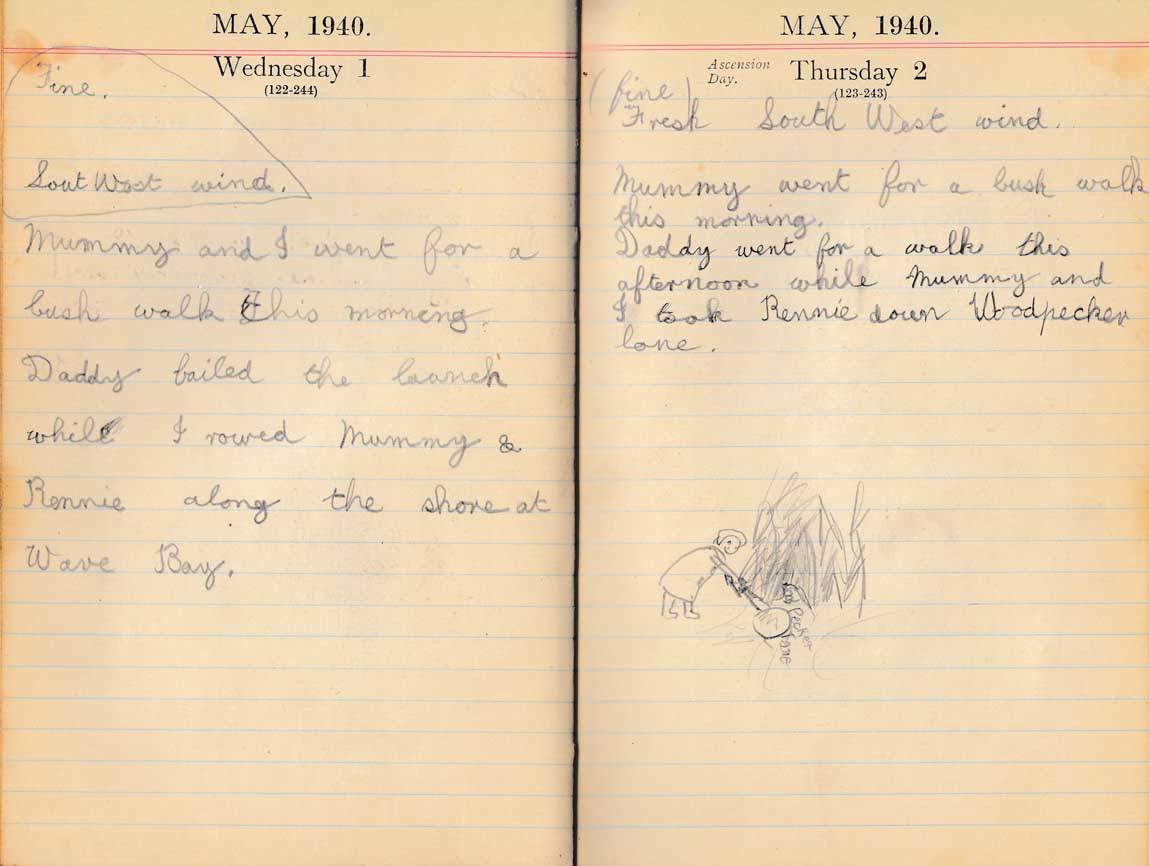 MAY, 1940.
Wednesday 1
(122-244)
Fine.
Sout West wind.
Mummy and I went for a
bush walk this morning.
Daddy bailed the launch
while I rowed Mummy &
Rennie along the shore at
Wave Bay.
MAY, 1940.
Ascension
Day.
Thursday 2
(123-243)
(fine)
Fresh South West wind.
Mummy went for a bush walk
this morning.
Daddy went for a walk this
afternoon while Mummy and
I took Rennie down Woodpecker
lane.
Pecker
lane